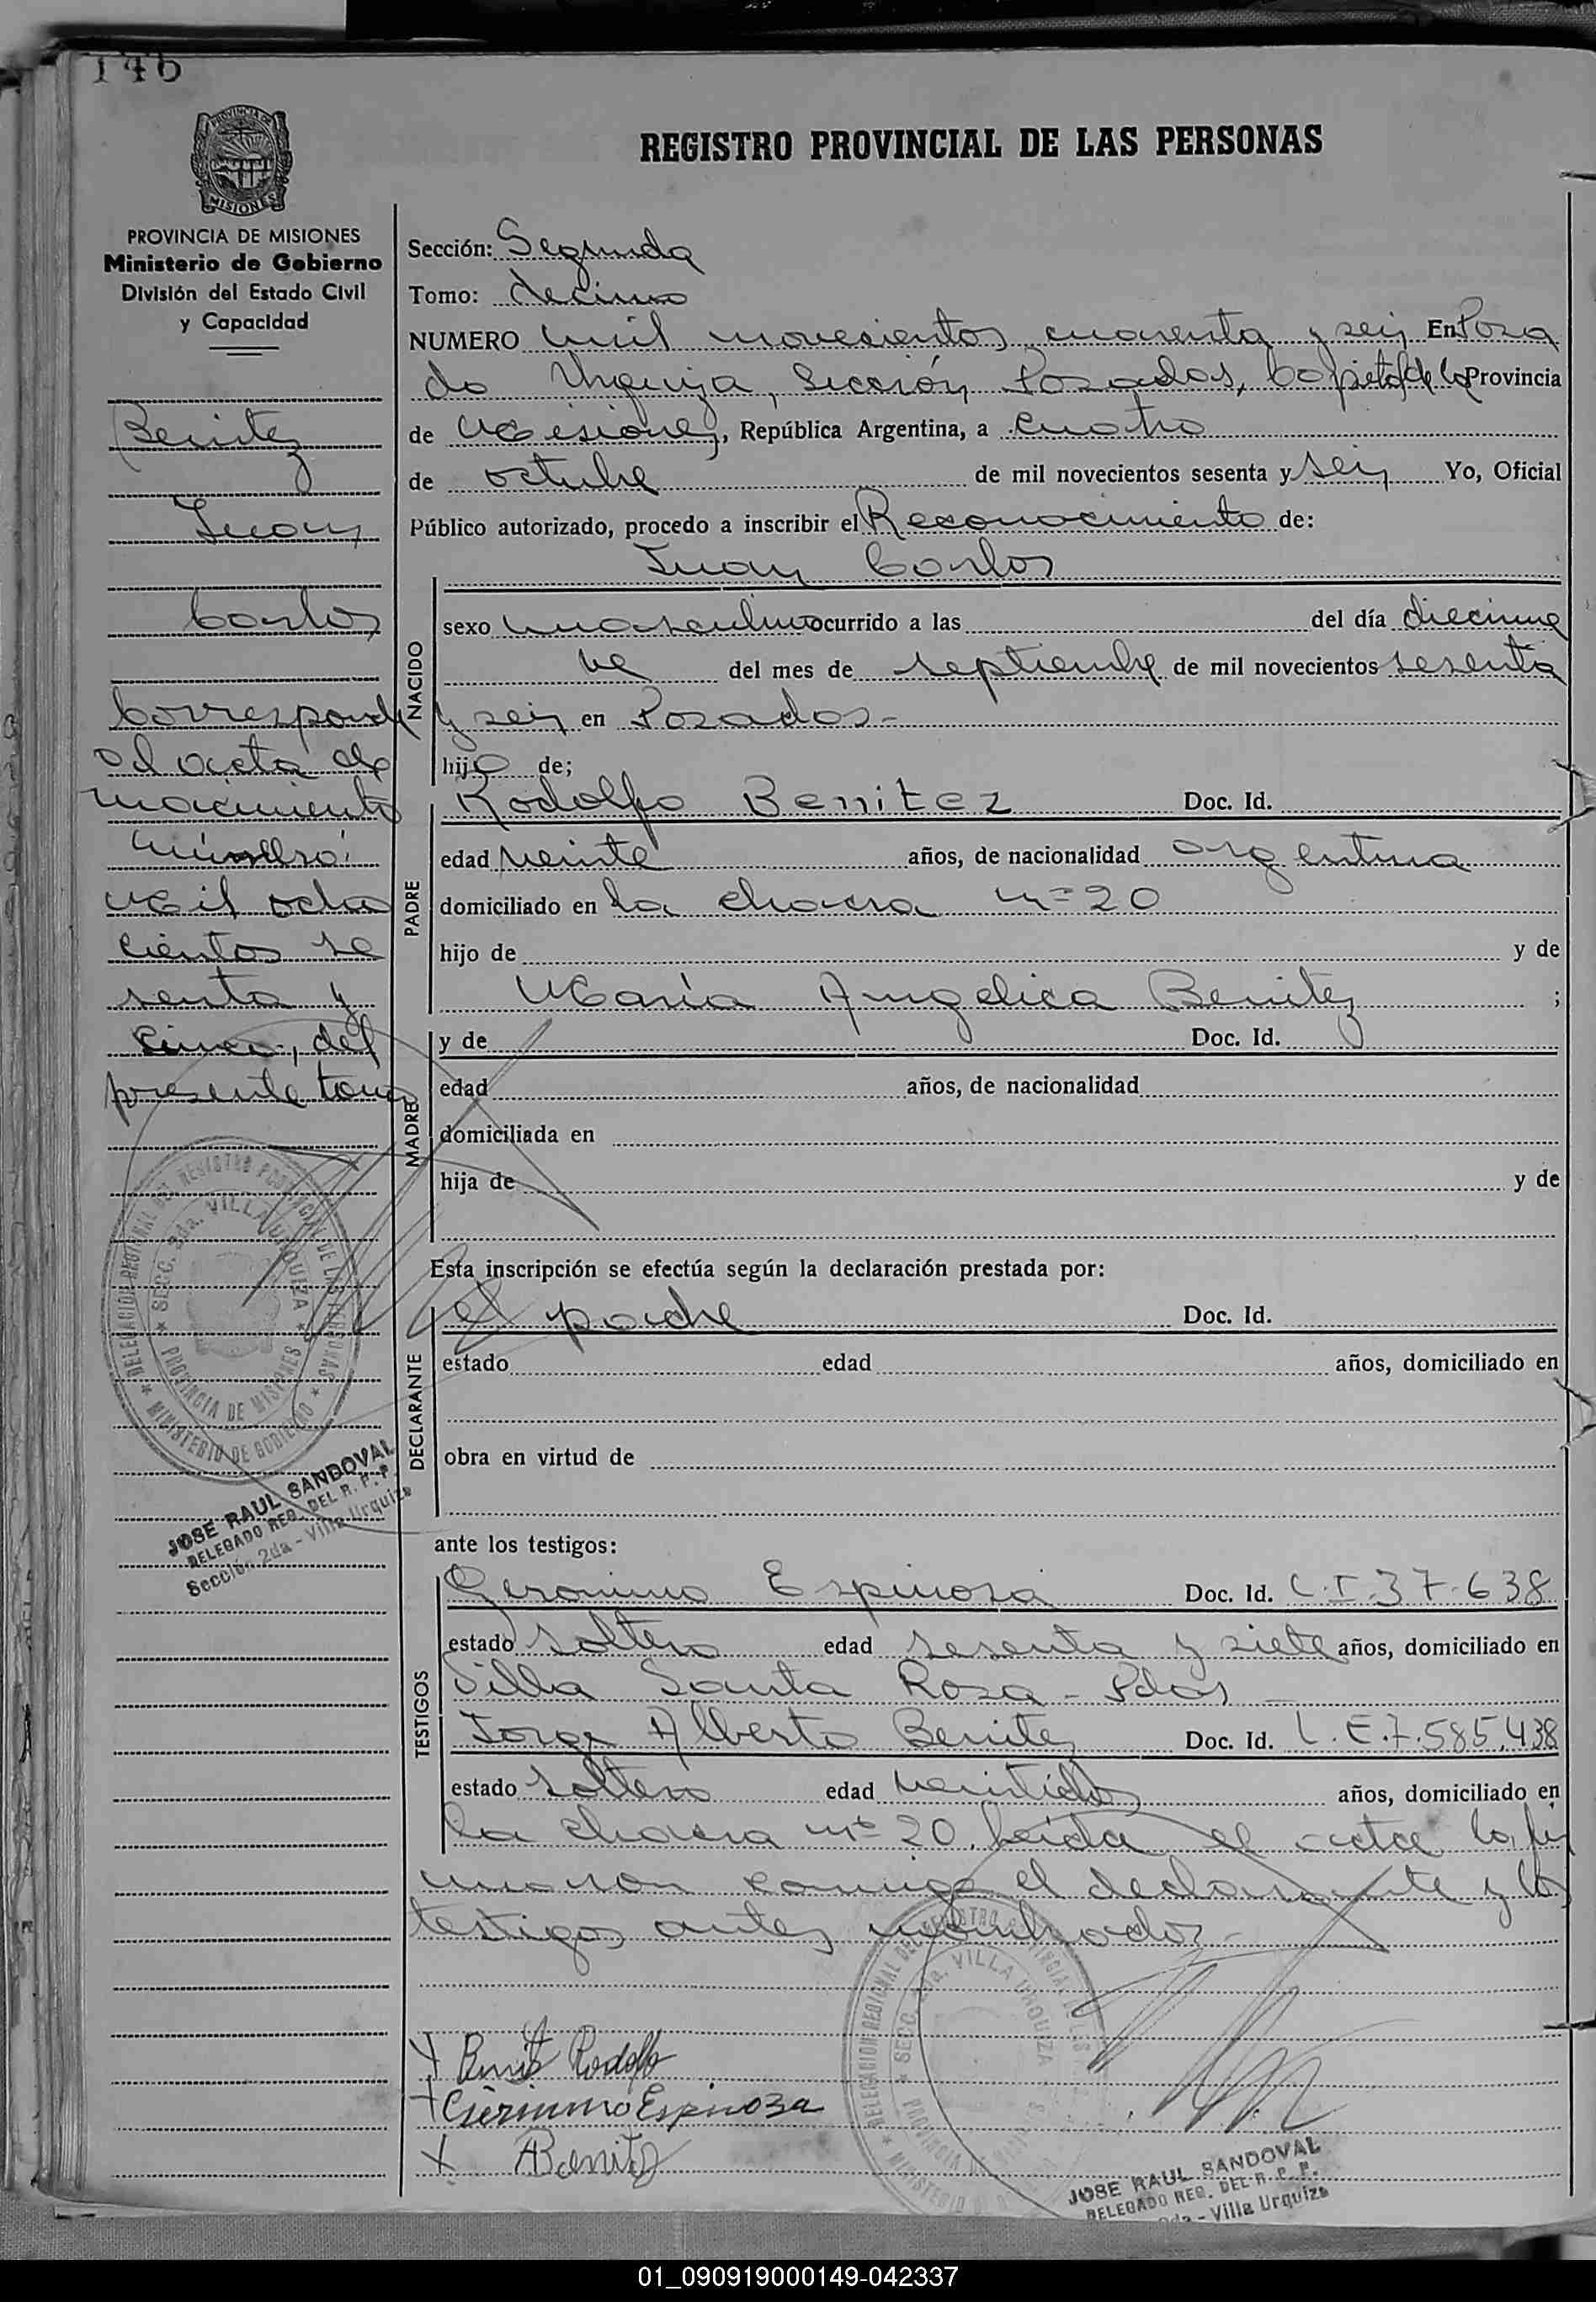 146
REGISTRO PROVINCIAL DE LAS PERSONAS
PROVINCIA DE MISIONES
MISIONES
PROVINCIA DE MISIONES
Ministerio de Gobierno
División del Estado Civil
y Capacidad
Benitez
Juan
Carlos
Corresponde
al acta de
nacimiento
número
Mil ocho
cientos se
senta y
cinco, del
presente tomo
Sección: Segunda
Tomo: decimo
NUMERO mil novesientos cuarenta y seis En Posa
da Urquiza, Sección Posadas, Capital de la Provincia
de Misiones, República Argentina, a cuatro
de octubre de mil novecientos sesenta y seis Yo, Oficial
Público autorizado, procedo a inscribir el Reconocimiento de:
Juan Carlos
NACIDO
sexo masculino ocurrido a las del día diecinue
ve del mes de septiembre de mil novecientos sesenta
y seis en Posadas.-
hijo de;
PADRE
Rodolfo Benitez Doc. Id.
edad veinte años, de nacionalidad argentina
domiciliado en la chacra nº 20
hijo de y de
María Angelica Benitez ;
MADRE
y de Doc. Id.
edad años, de nacionalidad
domiciliada en
hija de y de
Esta inscripción se efectúa según la declaración prestada por:
DECLARANTE
el padre Doc. Id.
estado edad años, domiciliado en
obra en virtud de
ante los testigos:
TESTIGOS
Geronimo Espinosa Doc. Id. C.I.37.638
estado soltero edad sesenta y siete años, domiciliado en
Villa Santa Rosa - Pdas -
Jorge Alberto Benitez Doc. Id. L.E.7.585.438
estado soltero edad veintidos años, domiciliado en
la chacra nº 20. Leida el acta la fir
maron conmigo el declarante y los
testigos antes nombrados.-
DELEGACION REGIONAL DEL REGISTRO PROVINCIAL DE LAS PERSONAS
SECC. 2da. VILLA URQUIZA
PROVINCIA DE MISIONES
MINISTERIO DE GOBIERNO
JOSE RAUL SANDOVAL
DELEGADO REG. DEL R. P. P.
Sección 2da - Villa Urquiza
Benitez Rodolfo
Gerinimo Espinoza
ABenitez
DELEGACION REGIONAL DEL REGISTRO PROVINCIAL
SECC. 2da. VILLA URQUIZA
PROVINCIA DE MISIONES
MINISTERIO
JOSE RAUL SANDOVAL
DELEGADO REG. DEL R. P. P.
2da - Villa Urquiza
01_090919000149-042337